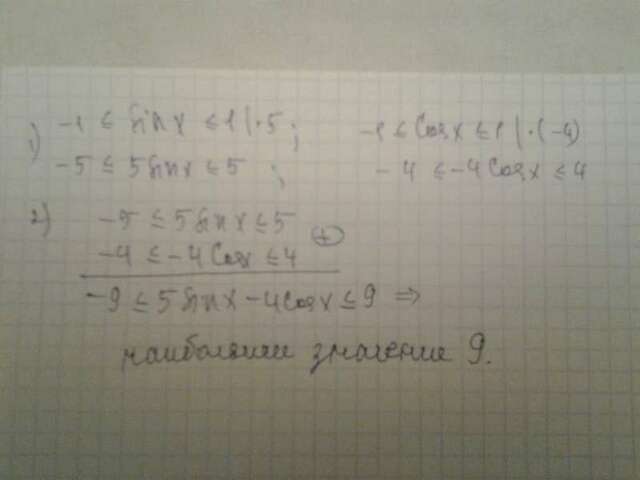 1) -1 ≤ sin x ≤ 1 | · 5 ; -1 ≤ Cos x ≤ 1 | · (-4)
-5 ≤ 5 sin x ≤ 5 ; -4 ≤ -4 Cos x ≤ 4
2) -5 ≤ 5 sin x ≤ 5
-4 ≤ -4 Cos x ≤ 4 (+)
-9 ≤ 5 sin x - 4 Cos x ≤ 9 ⇒
наибольшее значение 9.